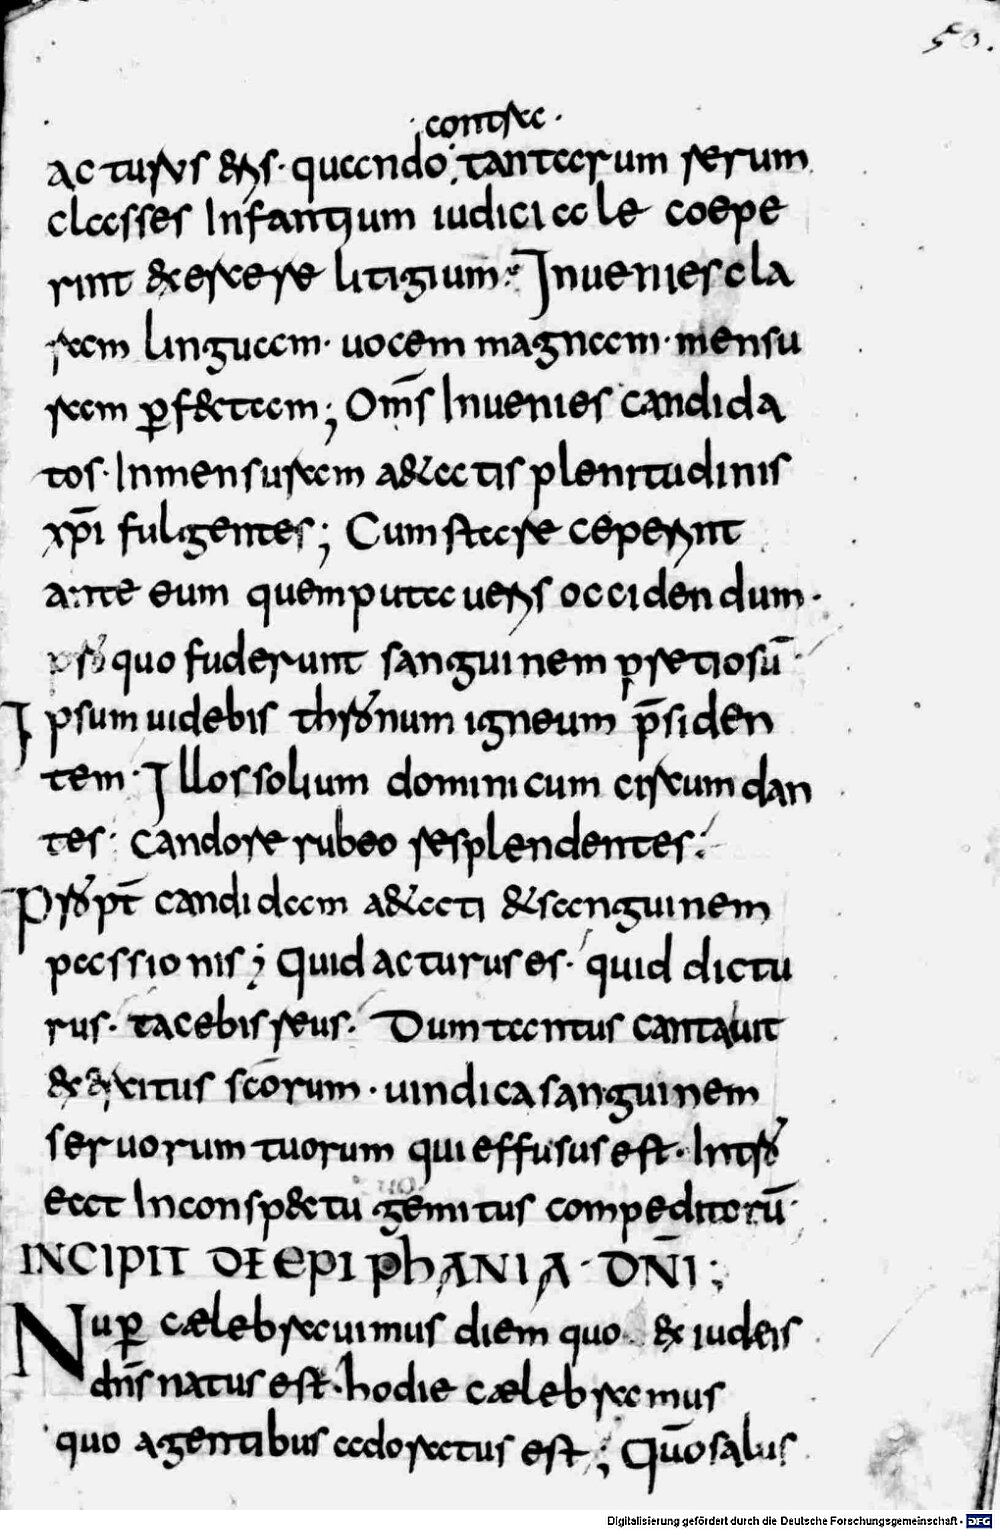 50.
· contra ·
acturus eris · quando tantarum rerum
classes Infantium iudiciale coepe
rint & exercere litigium · Inuenies cla
ram linguam · uocem magnam · mensu
ram perf&tam ; Om̅s Inuenies candida
tos · Inmensuram a&atis plenitudinis
xp̅i fulgentes ; Cum stare ceperint
ante eum quem putaueris occidendum ·
pro quo fuderunt sanguinem pretiosu̅ ·
Ipsum uidebis thronum igneum p̅siden
tem · Illos solium dominicum circum dan
tes · candore rubeo resplendentes ·
Propt̅ candidam a&ati & sanguinem
passionis ; Quid acturus es · quid dictu
rus · tacebis reus · Dum tantus cantauit
exercitus sc̅orum · uindica sanguinem
seruorum tuorum qui effusus est · Intro
eat Inconsp&tu gemitus compeditoru̅ ·
INCIPIT DE EPIPHANIA · DN̅I ;
Nup̲ cælebrauimus diem quo & iudeis
dn̅s natus est · hodie cælebramus
quo agentibus adoratus est ; Quo̅ salus